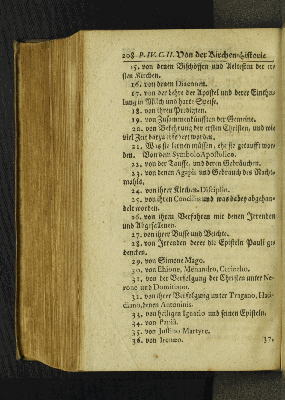 208 P. IV. C. II. Von der Kirchen-Historie
15. von denen Bischöffen und Aeltesten der er-
sten Kirchen.
16. von denen Diaconen.
17. von der Lehre der Apostel und derer Einthei-
lung in Milch und harte Speise.
18. von ihren Predigten.
19. von Zusammenkünfften der Gemeine.
20. von Bekehrung der ersten Christen, und wie
viel Zeit darzu erfodert worden.
21. Was sie lernen müssen, ehe sie getaufft wor-
den. Von dem Symbolo Apostolico.
22. von der Tauffe, und deren Gebräuchen.
23. von denen Agapis und Gebrauch des Nacht-
mahls.
24. von ihrer Kirchen-Disciplin.
25. von ihren Conciliis und was dabey abgehan-
delt worden.
26. von ihrem Verfahren mit denen Irrenden
und Abgefallenen.
27. von ihrer Busse und Beichte.
28. von Irrenden derer die Episteln Pauli ge-
dencken.
29. von Simone Mago.
30. von Ebione, Menandro, Cerintho.
31. von der Verfolgung der Christen unter Ne-
rone und Domitiano.
32. von ihrer Verfolgung unter Trajano, Hadri-
ano, denen Antoninis.
33. von heiligen Ignatio und seinen Episteln.
34. von Papia.
35. von Justino Martyre.
36. von Irenæo.
37.